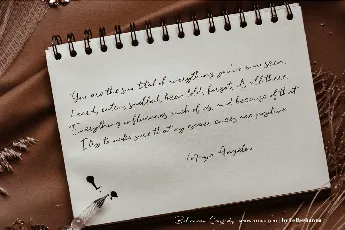 You are the sum total of everything you've ever seen,
heard, eaten, smelled, been told, forgot, it's all there.
Everything influences each of us, and because of that
I try to make sure that my experiences are positive.
Maya Angelou
by